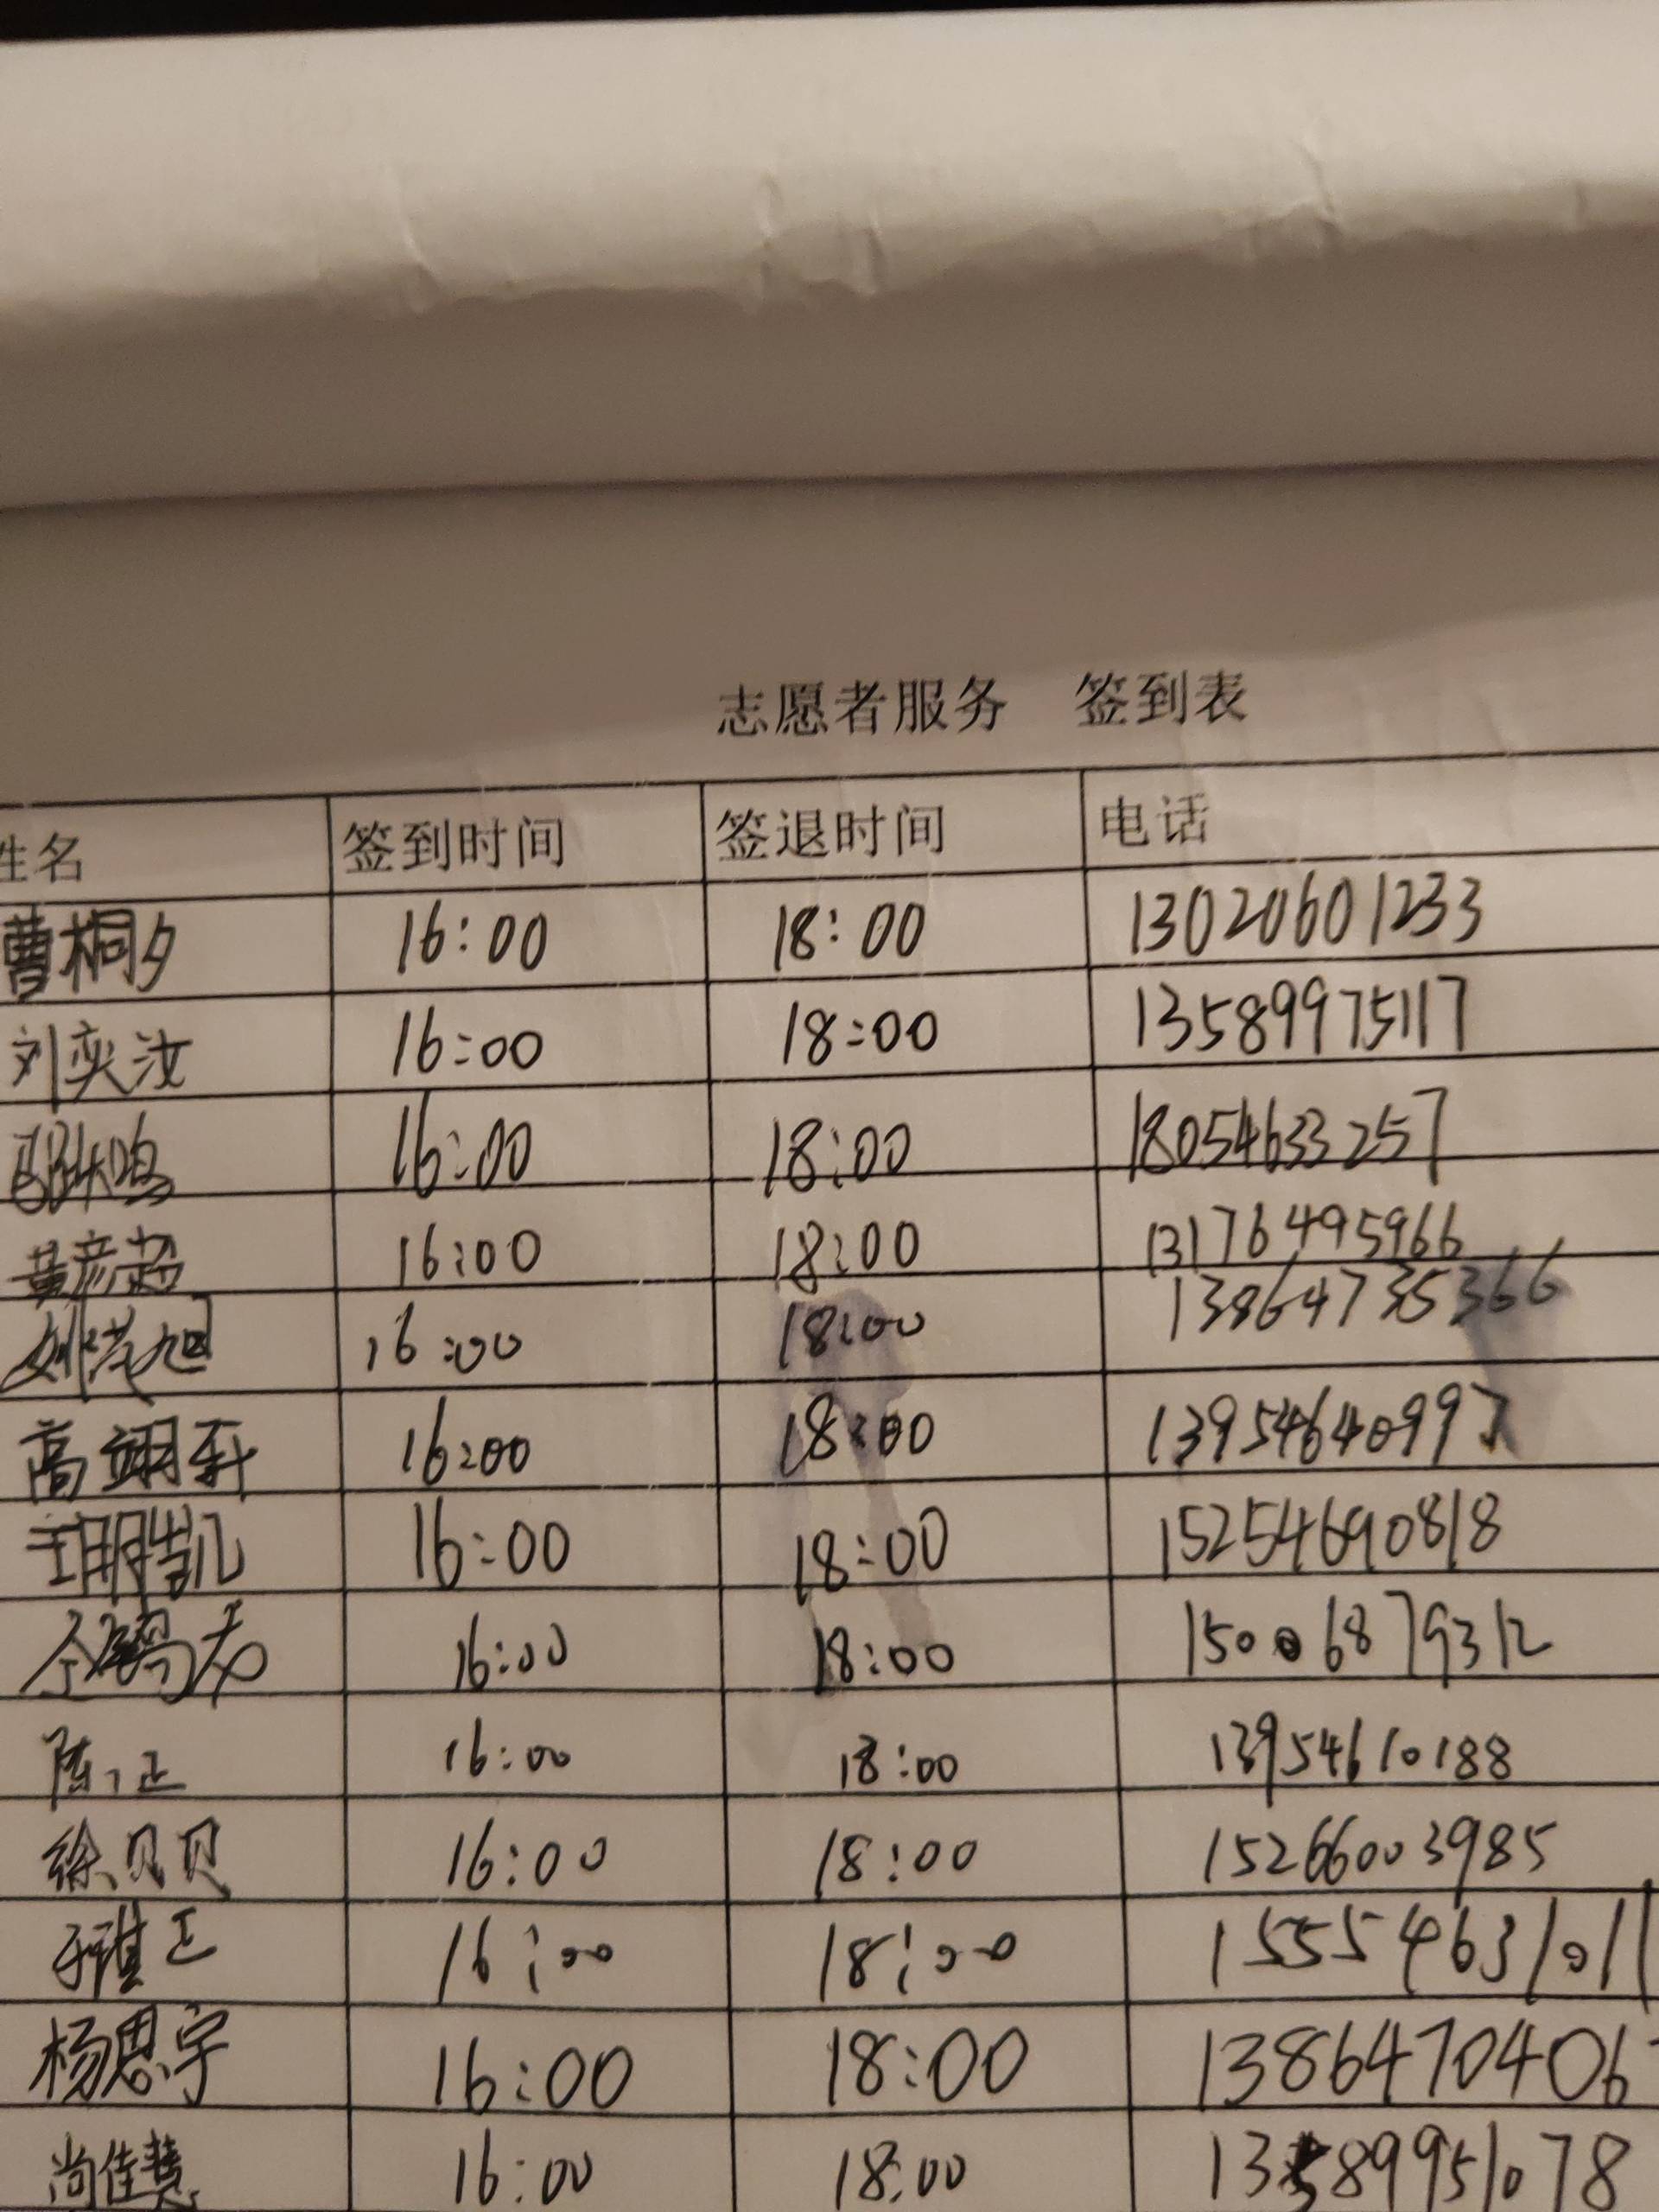 志愿者服务 签到表
姓名 签到时间 签退时间 电话
曹桐夕 16:00 18:00 13020601233
刘奕汝 16:00 18:00 13589975117
16:00 18:00 18054633257
黄彦超 16:00 18:00 13176495966
16:00 18:00 13864735366
高翊轩 16:00 18:00 13954640997
王明凯 16:00 18:00 15254690818
16:00 18:00 15006879312
陈正 16:00 18:00 13954610188
徐贝贝 16:00 18:00 15266003985
16:00 18:00 15554631011
杨思宇 16:00 18:00 1386470406
尚佳慧 16:00 18:00 13589951078